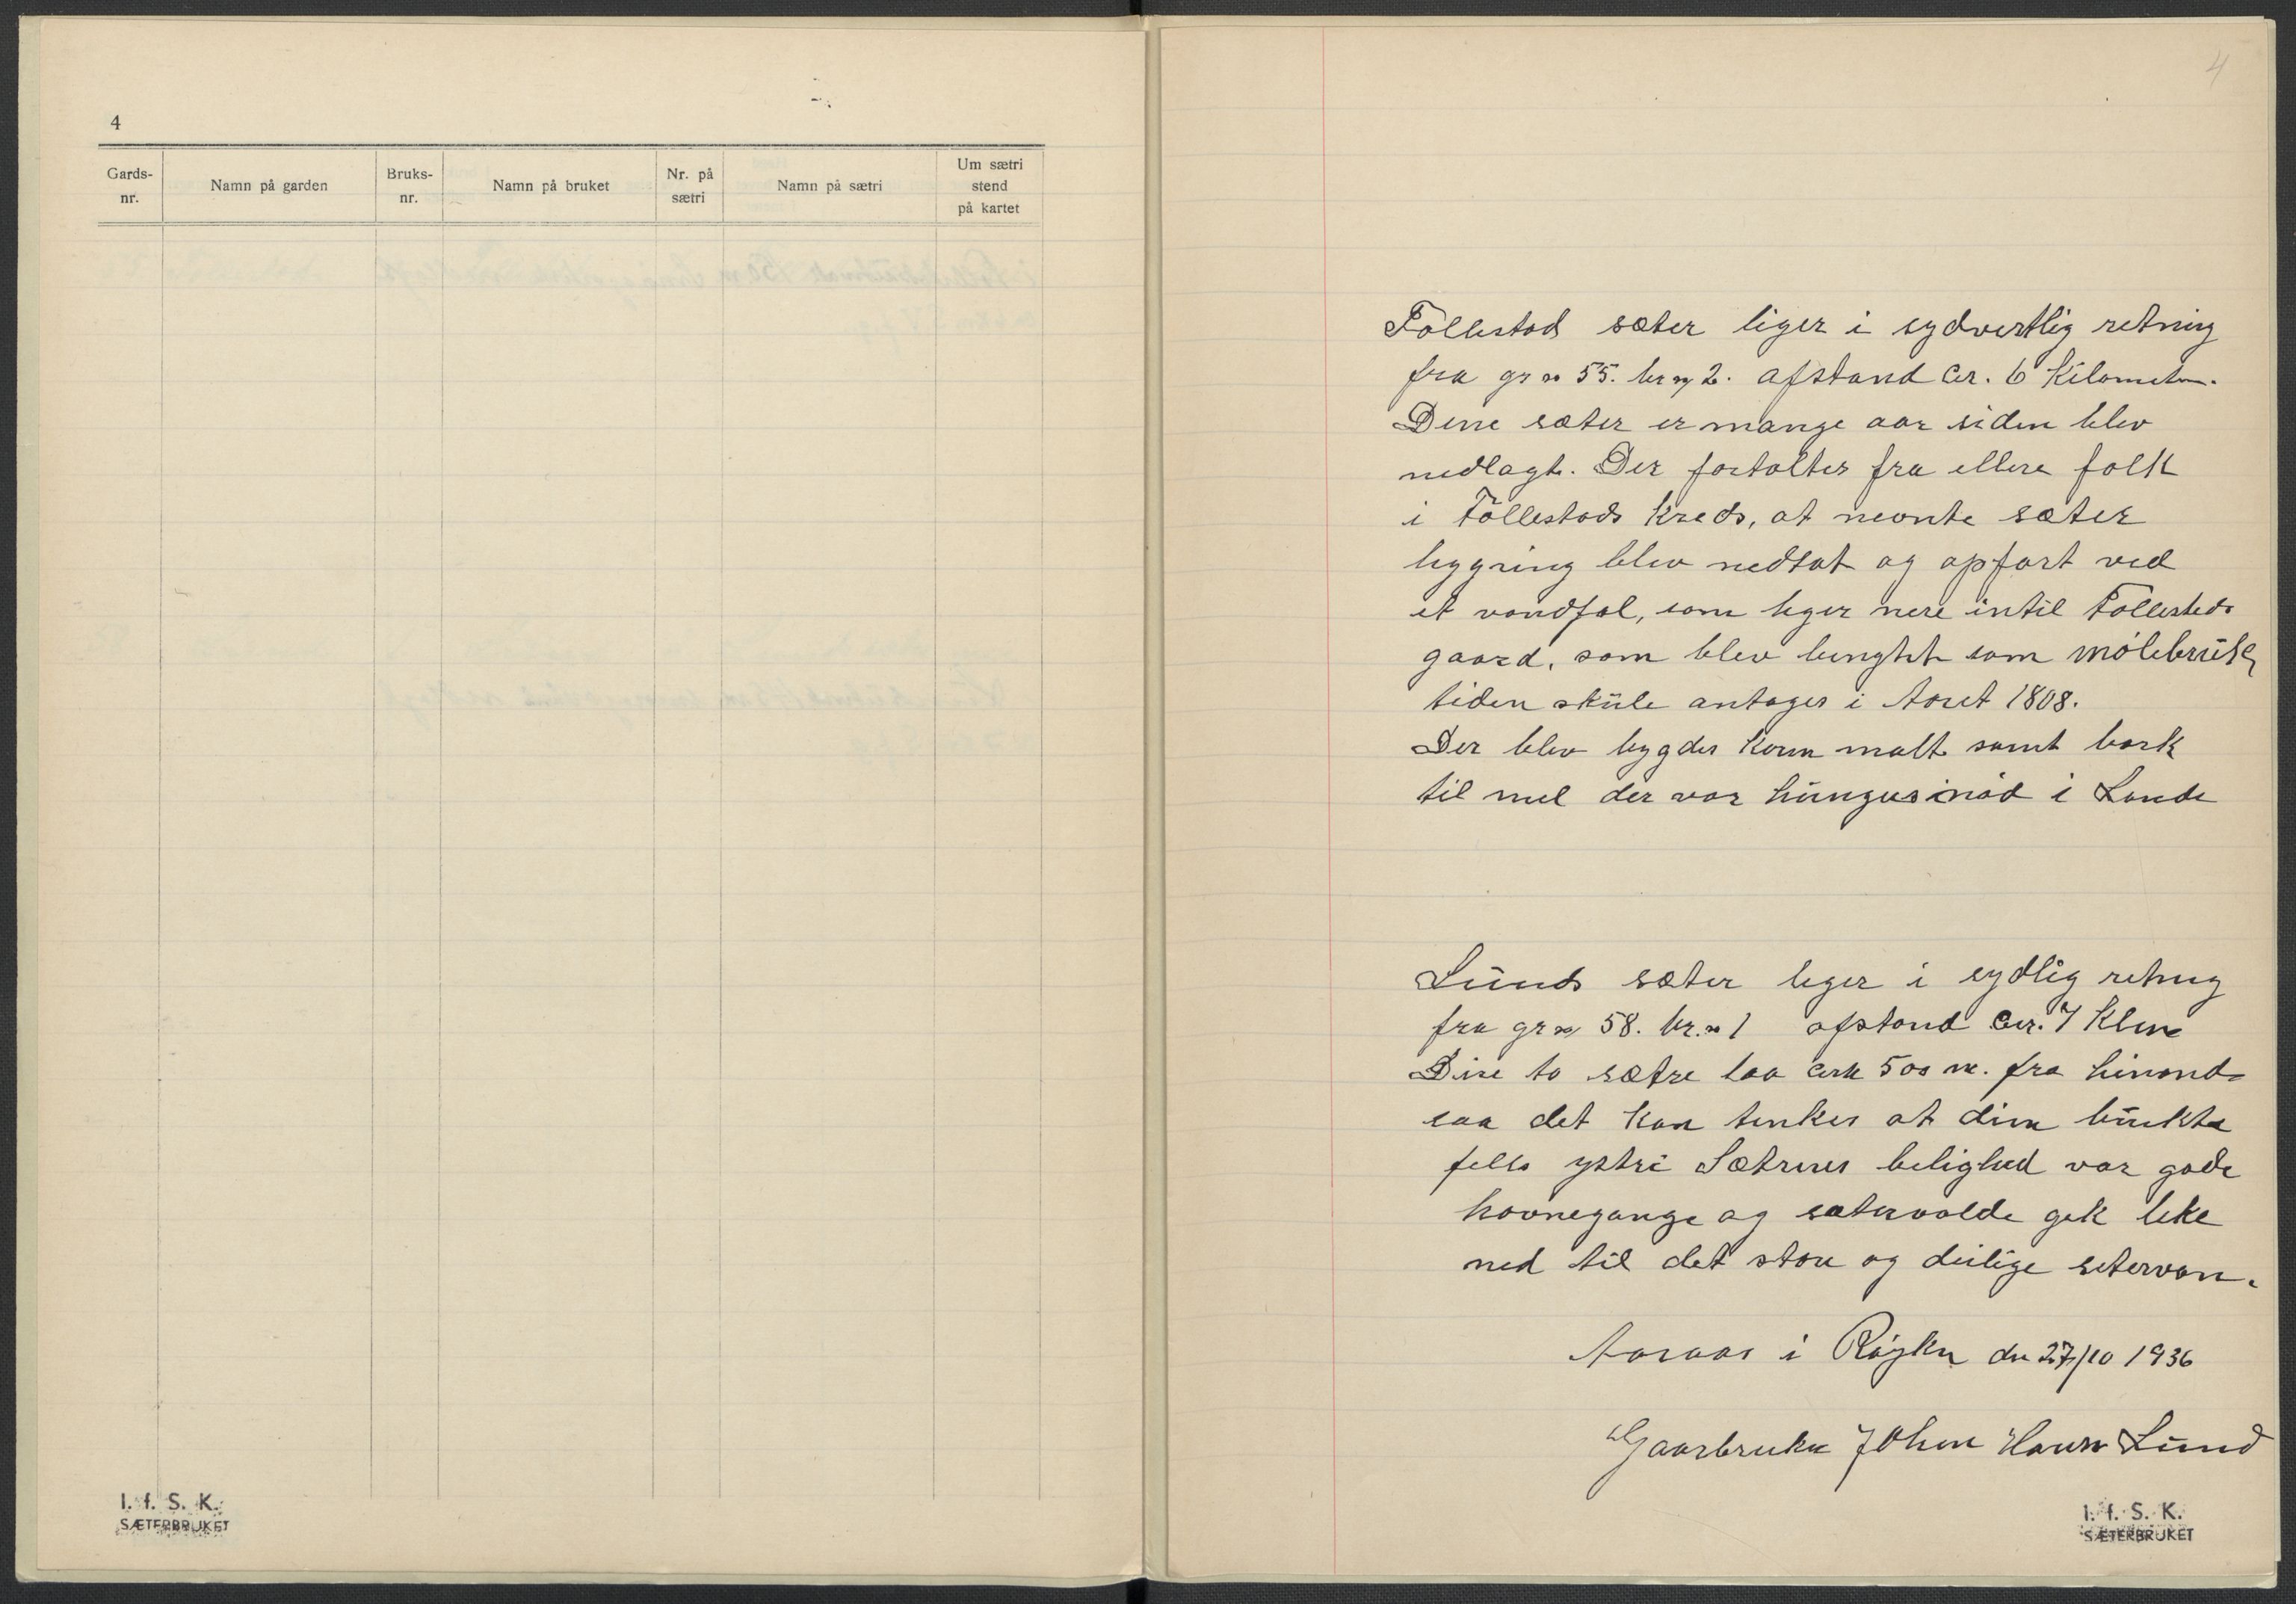 4
Gards-
nr.
Namn på garden
Bruks-
nr.
Namn på bruket
Nr. på
sætri
Namn på sætri
Um sætri
stend
på kartet
I. f. S. K.
SÆTERBRUKET
4
Föllestad sæter liger i sydvestlig retning
fra gr no 55. br no 2. afstand cr. 6 Kilometer.
Dene sæter er mange aar siden blev
nedlagt. Der fortaltes fra eldere folk
i Töllestads Kreds, at nevnte sæter
bygning blev nedtat og opført ved
et vandfal, som liger nere intil Follestads
gaard, som blev benyttet som mölebrük,
tiden sküle antages i Aaret 1808.
Der blev bygdes Korn malt samt bark
til mel der var hüngersinöd i Lande
Lünds sæter liger i sydlig retning
fra gr no 58. br. no 1 afstand cer. 7 Klm
Dise to sætre laa cirk 500 m. fra hinand
saa det kan tenkes at dem brükte
fells ystri Sætrenes belighed var gode
havnegange og sætervolde gik like
ned til det store og deilige setervan.
Aaraas i Röyken den 27/10 1936
Gaarbruker Johan Hansen Lünd
I. f. S. K.
SÆTERBRUKET